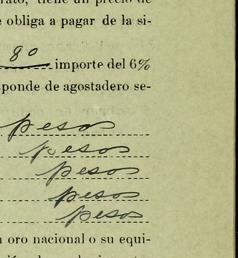 rato, tiene un precio de
obliga a pagar de la si-
80 importe del 6%
ponde de agostadero se-
pesos
pesos
pesos
pesos
pesos
oro nacional o su equi-